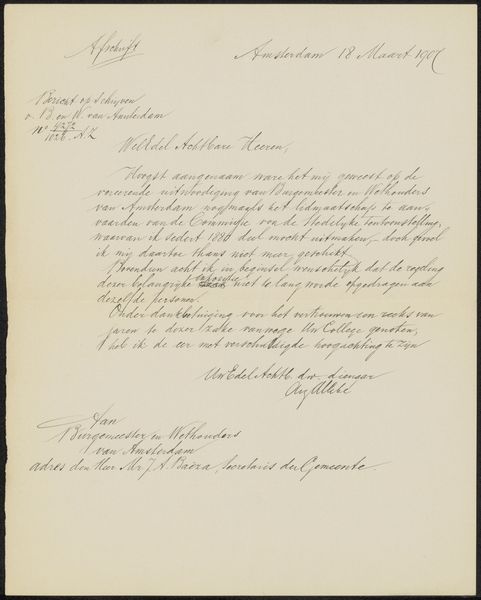 Afschrift
Amsterdam 18 Maart 1907
Bericht op Schrijven
v. B. en W. van Amsterdam
No 4272
1026 A.Z
WelEdel Achtbare Heeren,
Hoogst aangenaam ware het mij geweest op de
vereerende uitnoodiging van Burgemeester en Wethouders
van Amsterdam nogmaals het lidmaatschap te aan-
vaarden van de Commissie van de Stedelijke Tentoonstelling,
waarvan ik sedert 1880 deel mocht uitmaken, doch gevoel
ik mij daartoe thans niet meer geschikt.
Bovendien acht ik in beginsel wenschelijk dat de regeling
dezer belangrijke expositie niet te lang worde opgedragen aan
dezelfde personen.
Onder dankbetuiging voor het vertrouwen een reeks van
jaren te dezer zake vanwege Uw College genoten,
heb ik de eer met verschuldigde hoogachting te zijn
UwEdel Achtb. dw. dienaar
Aug Allebé
Aan
Burgemeester en Wethouders
van Amsterdam
adres den Heer Mr J. A. Secretaris der Gemeente.